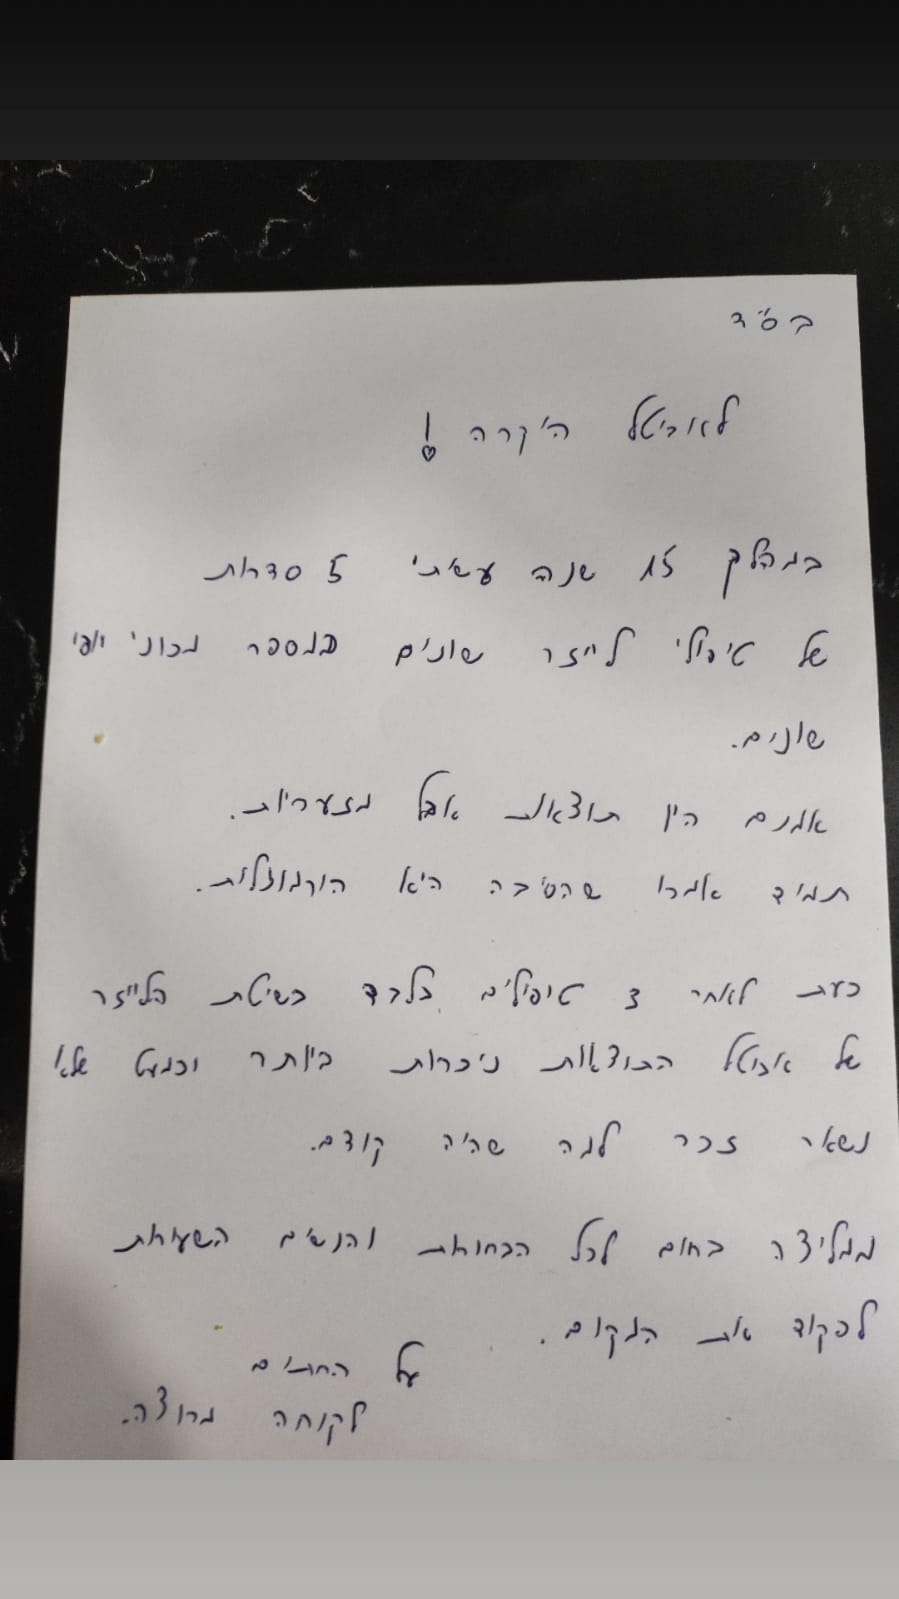 בס״ד
לאביטל היקרה!
במהלך 15 שנה עשיתי 5 סדרות
של טיפולי לייזר שונים במספר מכוני יופי
שונים.
אמנם היו תוצאות אבל מזעריות.
תמיד אמרו שהסיבה היא הורמונלית.
כעת לאחר 3 טיפולים בלבד בשיטת הלייזר
של אביטל התוצאות ניכרות ביותר וכמעט שלא
נשאר זכר למה שהיה קודם.
ממליצה בחום לכל הבחורות והנשים השעירות
לפקוד את המקום.
על החתום
לקוחה מרוצה.